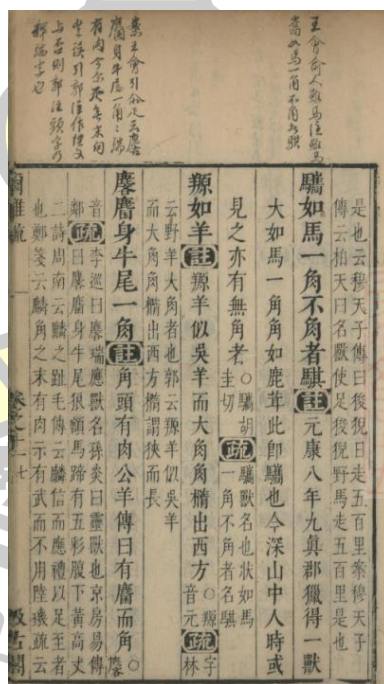 王會俞人雖馬注雖馬
嶲如馬一角不角者騏
案王會引爾疋云麐
麕身牛尾一角
有肉今爾疋無末句
與否則郭注頭字乃
是也云穆天子傳曰狻猊日走五百里黎穆天子
傳云柏夭曰名獸使足狻猊野馬走五百里是也
驨如馬一角不角者騏註元康八年九真郡獵得一獸
大如馬一角角如鹿茸此即驨也今深山中人時或
見之亦有無角者○驨胡圭切疏驨獸名也狀如馬一角不角者名騏
羱如羊註羱羊似吳羊而大角角橢出西方○羱音元疏字林
云野羊大角者也郭云羱羊似吳羊
而大角角橢出西方橢謂狹而長
麐麕身牛尾一角註角頭有肉公羊傳曰有麕而角○麐
音鄰疏李巡曰麐瑞應獸名孫炎曰靈獸也京房易傳
曰麐麕身牛尾狼額馬蹄有五彩腹下黃高丈
二詩周南云麟之趾毛傳云麟信而應禮以足至者
也鄭箋云麟角之末有肉示有武而不用陸璣疏云
爾雅疏
卷之十一
七
汲古閣